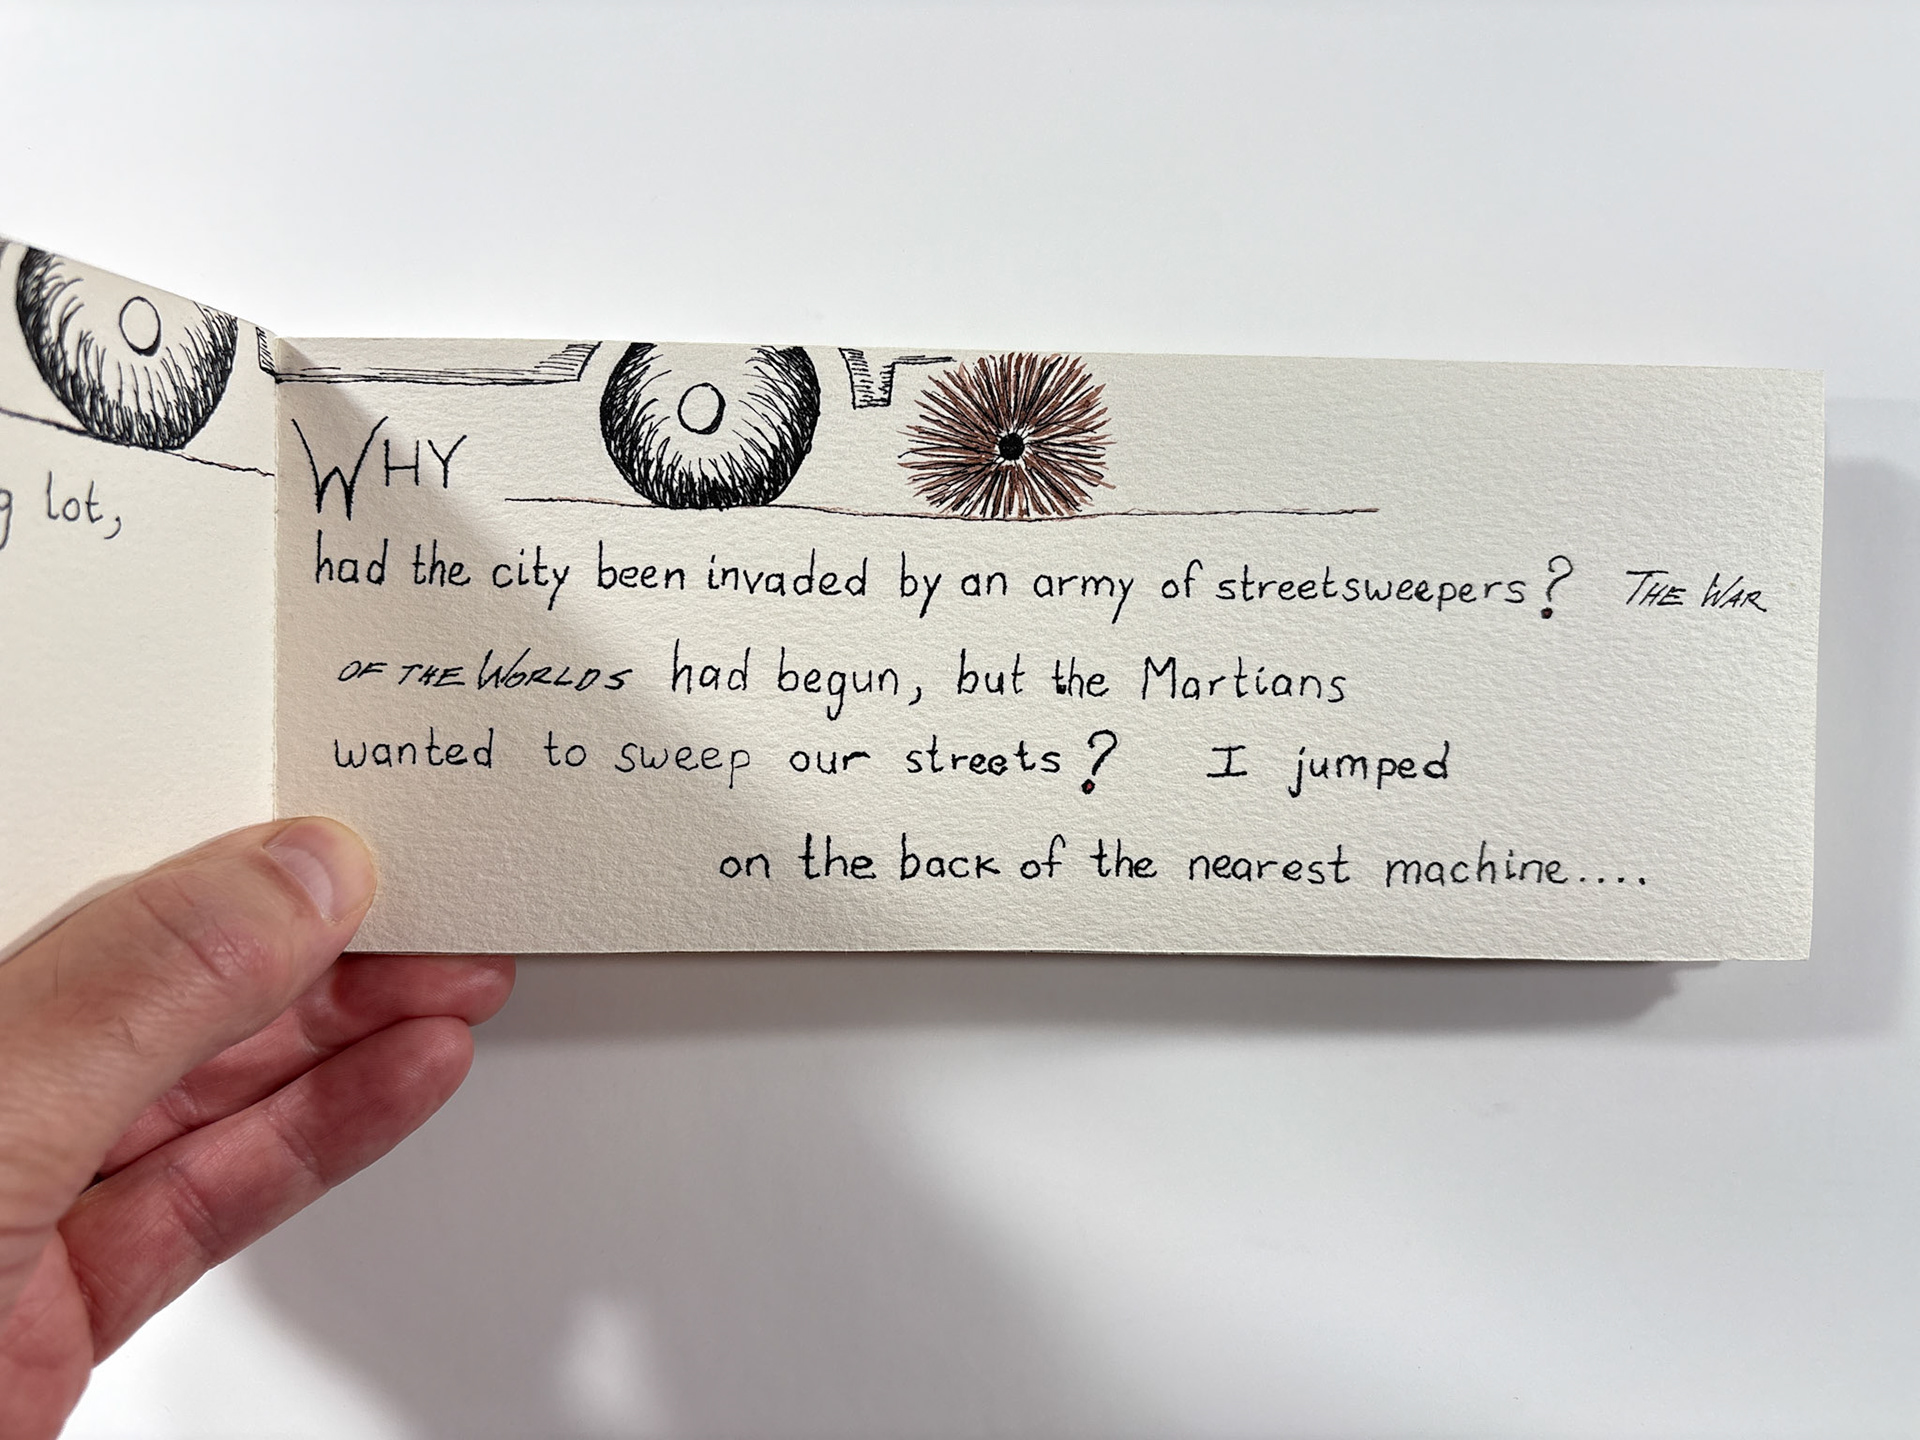 lot,
WHY
had the city been invaded by an army of streetsweepers? THE WAR
OF THE WORLDS had begun, but the Martians
wanted to sweep our streets? I jumped
on the back of the nearest machine....